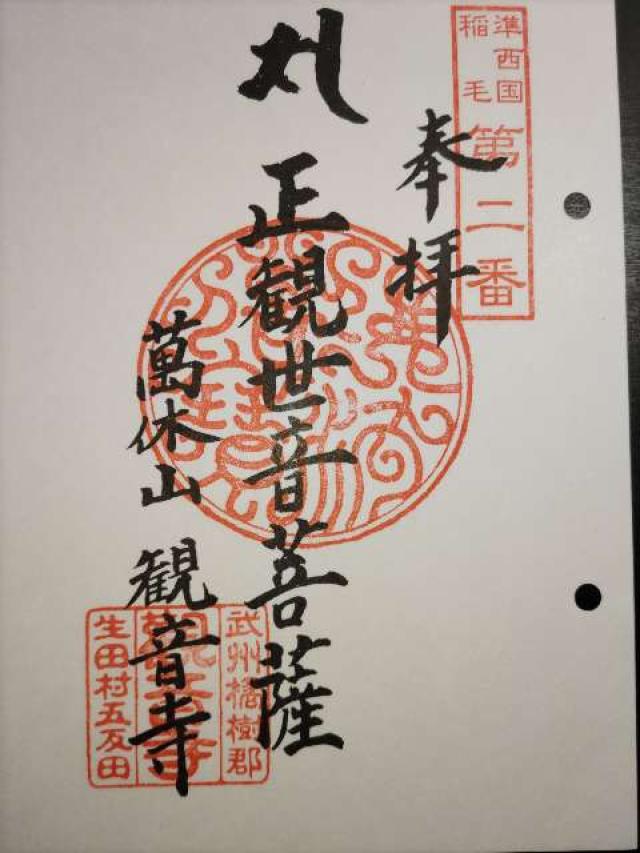 準西国
稲毛
第二番
奉拝
正観世音菩薩
萬休山 観音寺
武州橘樹郡
観音寺
生田村五反田